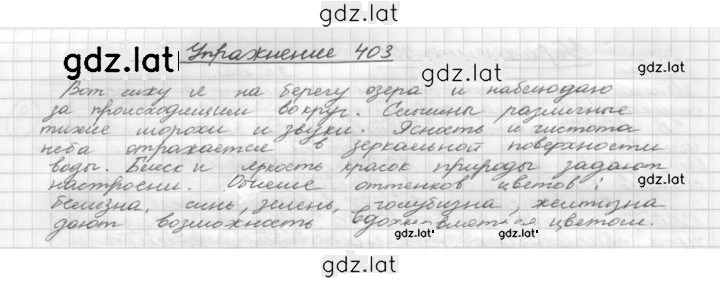 gdz.lat
gdz.lat Упражнение 403
Вот сижу я на берегу озера и наблюдаю
gdz.lat
за происходящим вокруг. Слышны различные
тихие шорохи и звуки. Ясность и чистота
неба отражается в зеркальной поверхности
воды. Блеск и яркость красок природы задают
gdz.lat
настроении. Обилие оттенков цветов:
белизна, синь, зелень, голубизна, желтизна
дают возможность цветом.
gdz.lat gdz.lat
gdz.lat